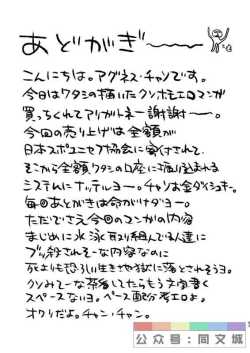 あとがき〜〜
こんにちは。アグネス・チャンです。
今日はワタシの描いたクソホモエロマンガ
買っちくれてアリガトネー謝謝ー。
今回の売り上げは全額が
日本スポユニセフ協会に寄付されて、
そこから全額ワタシの口座に振り込まれる
システムにナッテルヨー。チャンは金ダイシュキー。
毎回あとがきは命がけダヨー。
ただでさえ今回のマンガの内容
まじめに水泳取り組んでる人達に
ブッ殺されそーな内容なのに
死よりも恐ろしい生き地獄に落とされろうヨ。
クソみてーな茶番してたらもう文字書く
スペースないヨ。ペース配分考エロよ。
オワリだよ。チャン・チャン。
公众号:同文城